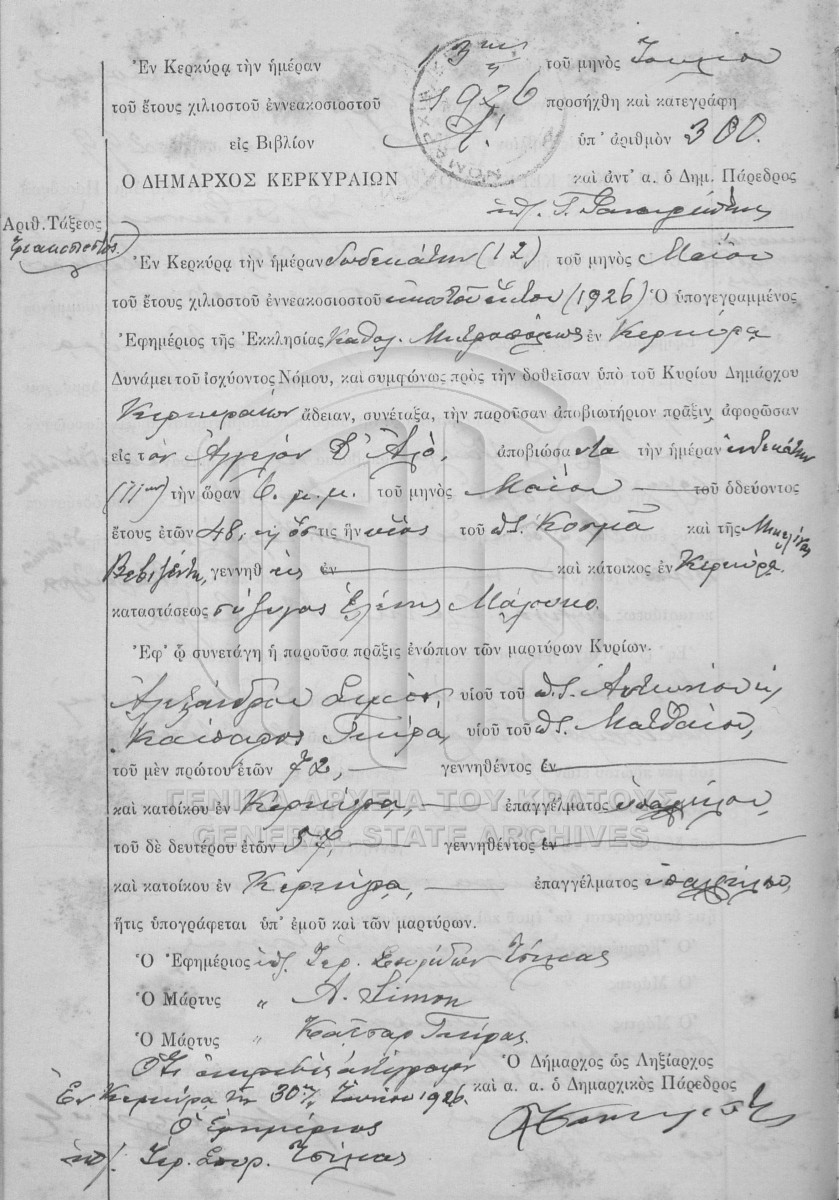 Ἐν Κερκύρᾳ τὴν ἡμέραν 3ην τοῦ μηνὸς Ἰουλίου
τοῦ ἔτους χιλιοστοῦ ἐννεακοσιοστοῦ 1926 προσήχθη καὶ κατεγράφη
εἰς Βιβλίον Α! ὑπ' ἀριθμὸν 300.
ΝΟΜΑΡΧΙΑ
Ο ΔΗΜΑΡΧΟΣ ΚΕΡΚΥΡΑΙΩΝ καὶ ἀντ' α. ὁ Δημ. Πάρεδρος
ὑπ. Γ.
Ἀριθ. Τάξεως
Τριακοσιοστὸς.
Ἐν Κερκύρᾳ τὴν ἡμέραν δωδεκάτην (12) τοῦ μηνὸς Μαΐου
τοῦ ἔτους χιλιοστοῦ ἐννεακοσιοστοῦ εἰκοστοῦ ἕκτου (1926) Ὁ ὑπογεγραμμένος
Ἐφημέριος τῆς Ἐκκλησίας Καθολ. Μητροπόλεως ἐν Κερκύρᾳ
Δυνάμει τοῦ ἰσχύοντος Νόμου, καὶ συμφώνως πρὸς τὴν δοθεῖσαν ὑπὸ τοῦ Κυρίου Δημάρχου
Κερκυραίων ἄδειαν, συνέταξα, τὴν παροῦσαν ἀποβιωτήριον πρᾶξιν ἀφορῶσαν
εἰς τὸν Ἄγγελον Δ' Ἀλὸ, ἀποβιώσαντα τὴν ἡμέραν ἑνδεκάτην
(11ην) τὴν ὥραν 6. μ. μ. τοῦ μηνὸς Μαΐου τοῦ ὁδεύοντος
ἔτους ἐτῶν 48, ὅστις ἦν υἱὸς τοῦ π. Κοσμᾶ καὶ τῆς
γεννηθεὶς ἐν καὶ κάτοικος ἐν Κερκύρᾳ.
καταστάσεως σύζυγος Ἑλένης
Ἐφ' ᾧ συνετάγη ἡ παροῦσα πρᾶξις ἐνώπιον τῶν μαρτύρων Κυρίων.
Ἀλεξάνδρου Σιμὸν, υἱοῦ τοῦ π. Ἀντωνίου κ
Καίσαρος Γκίρα, υἱοῦ τοῦ π. Ματθαίου,
τοῦ μὲν πρώτου ἐτῶν 72, γεννηθέντος ἐν
καὶ κατοίκου ἐν Κερκύρᾳ, ἐπαγγέλματος ὑπαλλήλου,
ΓΕΝΙΚΑ ΑΡΧΕΙΑ ΤΟΥ ΚΡΑΤΟΥΣ
GENERAL STATE ARCHIVES
τοῦ δὲ δευτέρου ἐτῶν 57, γεννηθέντος ἐν
καὶ κατοίκου ἐν Κερκύρᾳ, ἐπαγγέλματος ὑπαλλήλου,
ἥτις ὑπογράφεται ὑπ' ἐμοῦ καὶ τῶν μαρτύρων.
Ὁ Ἐφημέριος ὑπ. Ἱερ. Σπυρίδων Τσίλιας
Ὁ Μάρτυς " A. Simon
Ὁ Μάρτυς " Καῖσαρ Γκίρας.
Ὅτι ἀκριβὲς ἀντίγραφον
Ἐν Κερκύρᾳ τῇ 30 Ἰουνίου 1926.
Ὁ Ἐφημέριος
ὑπ. Ἱερ. Σπυρ. Τσίλιας
Ὁ Δήμαρχος ὡς Ληξίαρχος
καὶ α. α. ὁ Δημαρχικὸς Πάρεδρος